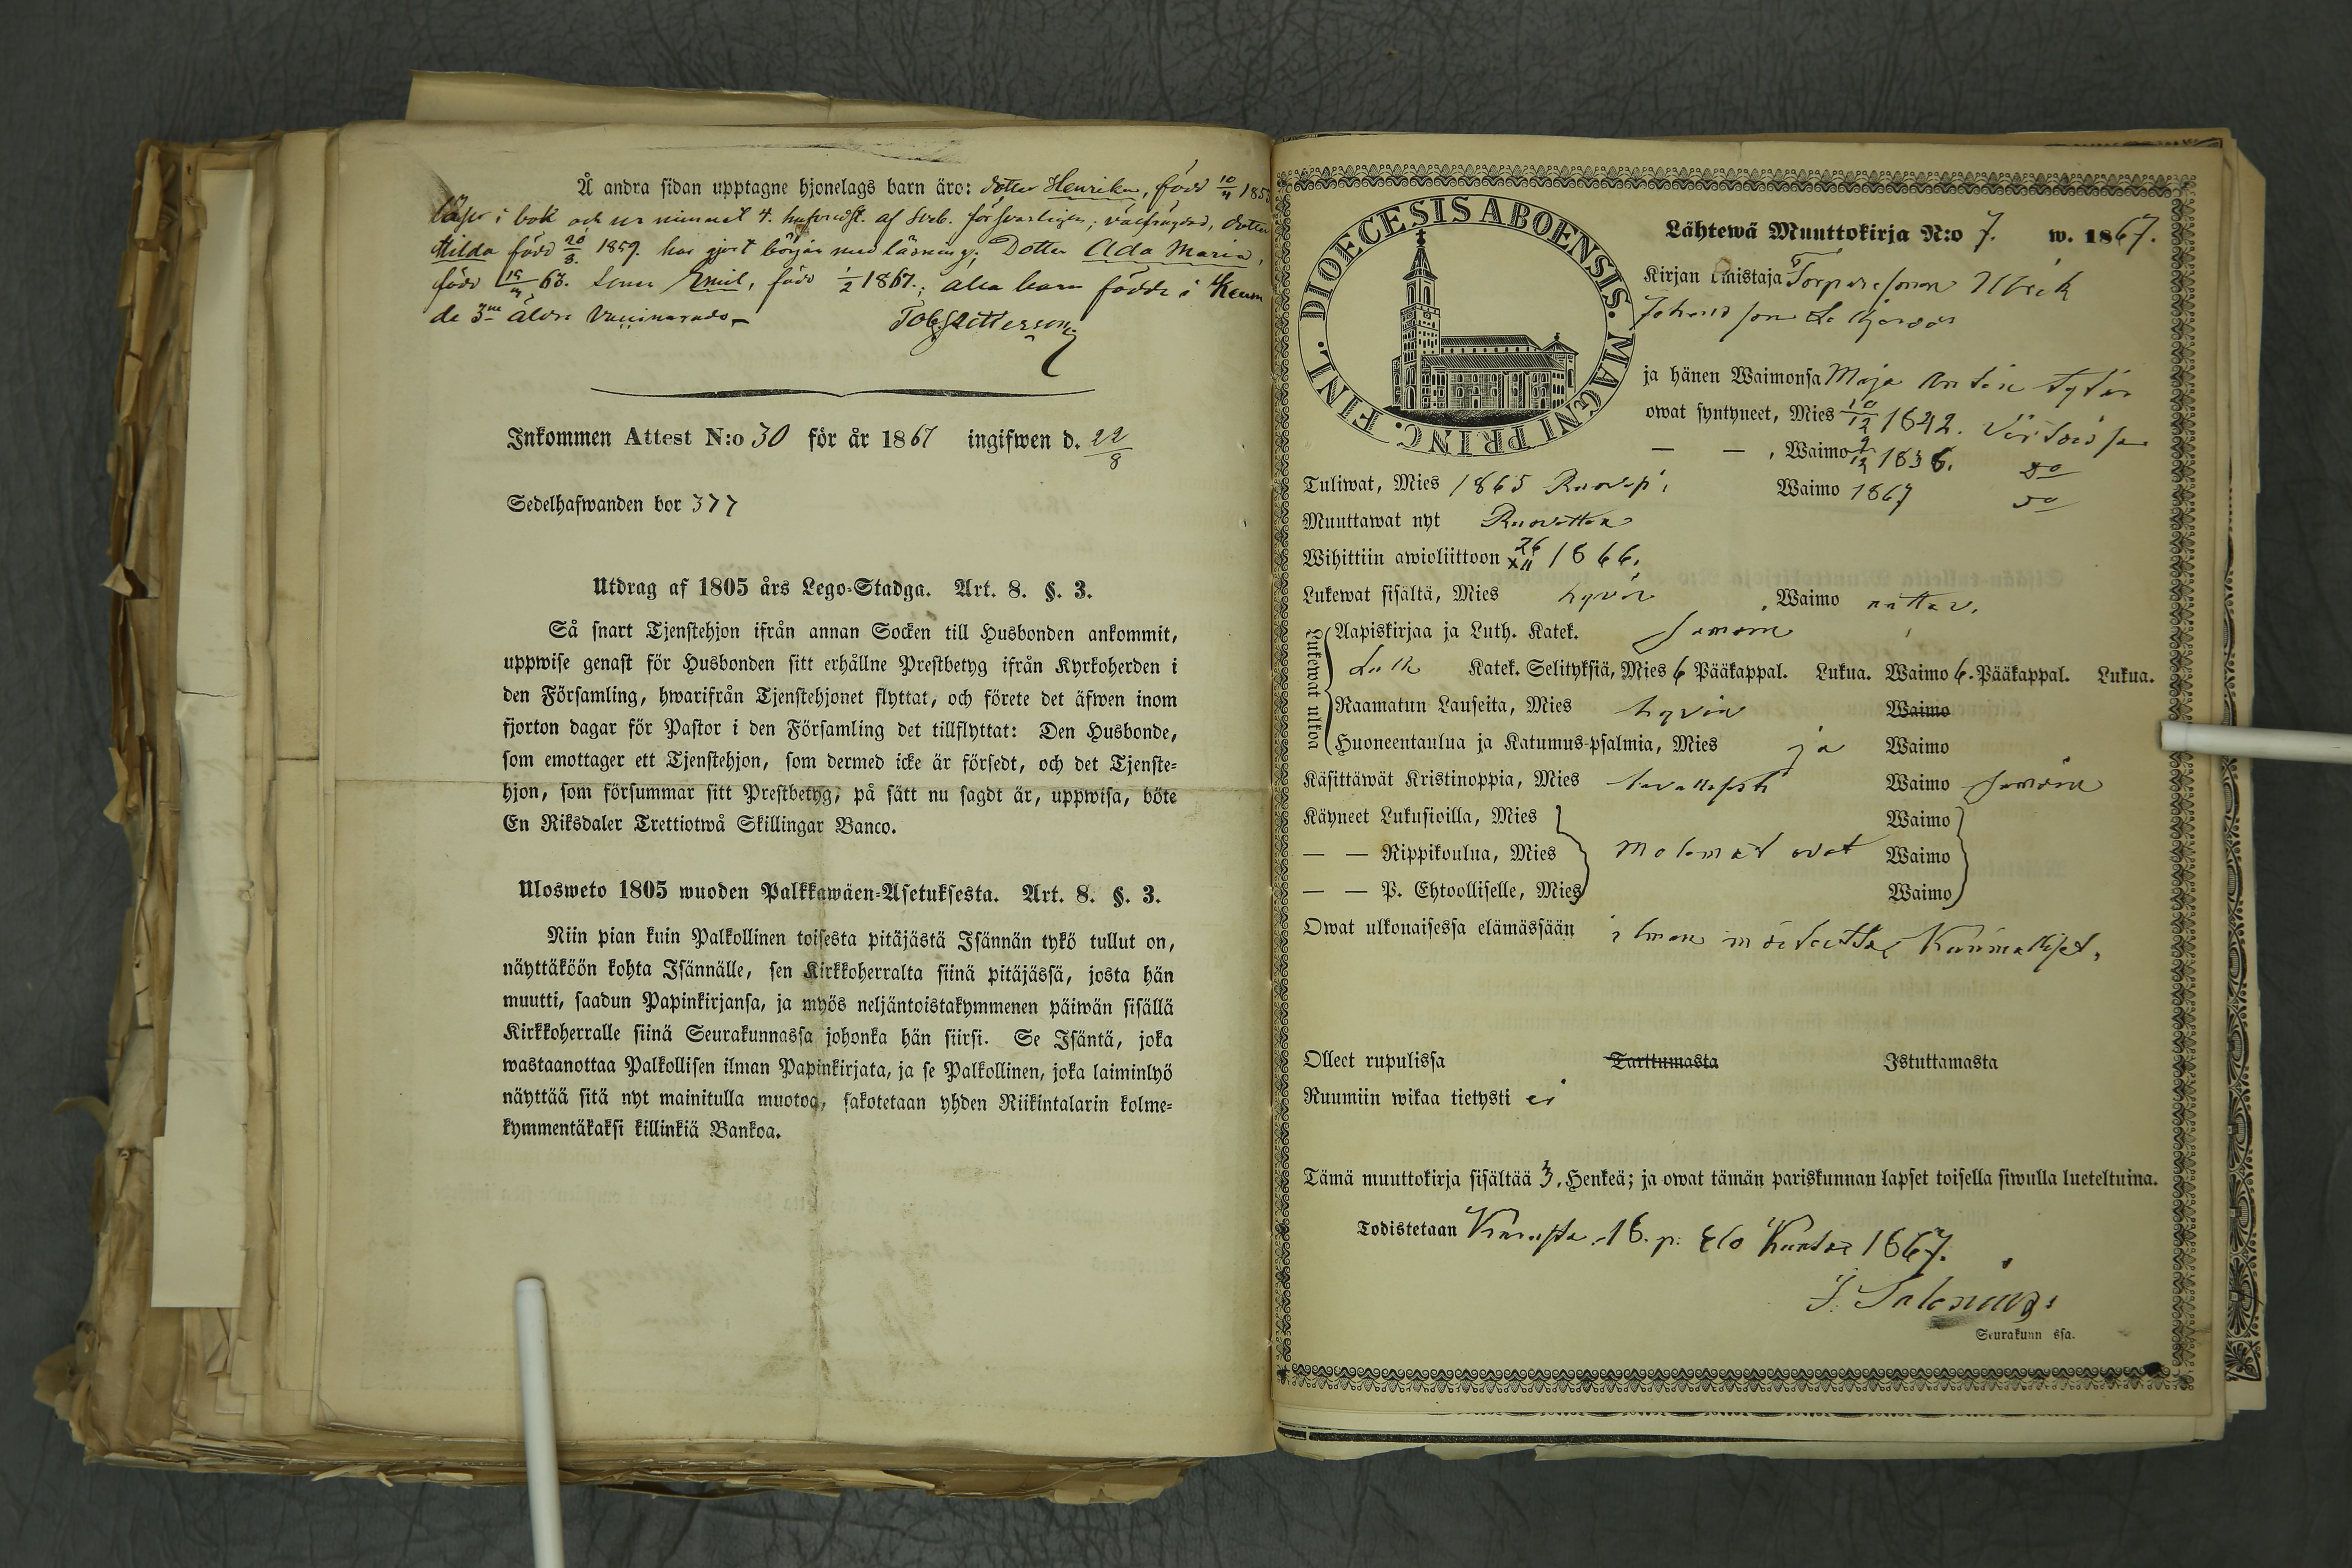 Å andra sidan upptagne hjonelags barn äro: dotter Henrika, född 10/4 185
läser i bok och ur minnet 4. hufvudst. af Sveb. försvarligen; välfrägdad, dotter
Hilda född 20/8 1859. har gjort början med läsning; Dotter Ada Maria,
född 63. Sonen Emil, född 1/2 1867.; alla barn födde i Keuru
de 3ne äldre Vaccinerade
Inkommen Attest N:o 30 för år 1867 ingifwen d. 22/8
Sedelhafwanden bor 377
Utdrag af 1805 års Lego-Stadga. Art. 8. §. 3.
Så snart Tjenstehjon ifrån annan Socken till Husbonden ankommit,
uppwise genast för Husbonden sitt erhållne Prestbetyg ifrån Kyrkoherden i
den Församling, hwarifrån Tjenstehjonet flyttat, och förete det äfwen inom
fjorton dagar för Pastor i den Församling det tillflyttat: Den Husbonde,
som emottager ett Tjenstehjon, som dermed icke är försedt, och det Tjenste-
hjon, som försummar sitt Prestbetyg, på sätt nu sagdt är, uppwisa, böte
En Riksdaler Trettiotwå Skillingar Banco.
Ulosweto 1805 wuoden Palkkawäen-Asetuksesta. Art. 8. §. 3.
Niin pian kuin Palkollinen toisesta pitäjästä Isännän tykö tullut on,
näyttäköön kohta Isännälle, sen Kirkkoherralta siinä pitäjässä, josta hän
muutti, saadun Papinkirjansa, ja myös neljäntoistakymmenen päiwän sisällä
Kirkkoherralle siinä Seurakunnassa johonka hän siirsi. Se Isäntä, joka
wastaanottaa Palkollisen ilman Papinkirjata, ja se Palkollinen, joka laiminlyö
näyttää sitä nyt mainitulla muotoa, sakotetaan yhden Riikintalarin kolme-
kymmentäkaksi killinkiä Bankoa.
DIOECESIS ABOENSIS. MAGNI PRINC. FINL.
Lähtewä Muuttokirja N:o 7. w. 1867.
Kirjan Omistaja
ja hänen Waimonsa Maja
owat syntyneet, Mies 10/12 1842. Virdois sa
— — , Waimo 1836. do
Tuliwat, Mies 1865 Waimo 1867 do
Muuttawat nyt Ruovetten
Wihittiin awioliittoon 26/XII 1866.
Lukewat sisältä, Mies hyvin , Waimo auttav.
Lukewat ulkoa
Aapiskirjaa ja Luth. Katek. samoin
Katek. Selityksiä, Mies 6 Pääkappal. Lukua. Waimo 6. Pääkappal. Lukua.
Raamatun Lauseita, Mies hyvin Waimo
Huoneentaulua ja Katumus-psalmia, Mies ja Waimo
Käsittäwät Kristinoppia, Mies tavallisesti Waimo samoin
Käyneet Lukusioilla, Mies Waimo
— — Rippikoulua, Mies molemat ovat Waimo
— — P. Ehtoolliselle, Mies Waimo
Owat ulkonaisessa elämässään ilman moiteetta, Kunnialliset.
Olleet rupulissa Tarttumasta Istuttamasta
Ruumiin wikaa tietysti ei
Tämä muuttokirja sisältää 3. Henkeä; ja owat tämän pariskunnan lapset toisella siwulla lueteltuina.
Todistetaan 16. p. Elo Kuuta 1867.
Seurakunn ssa.